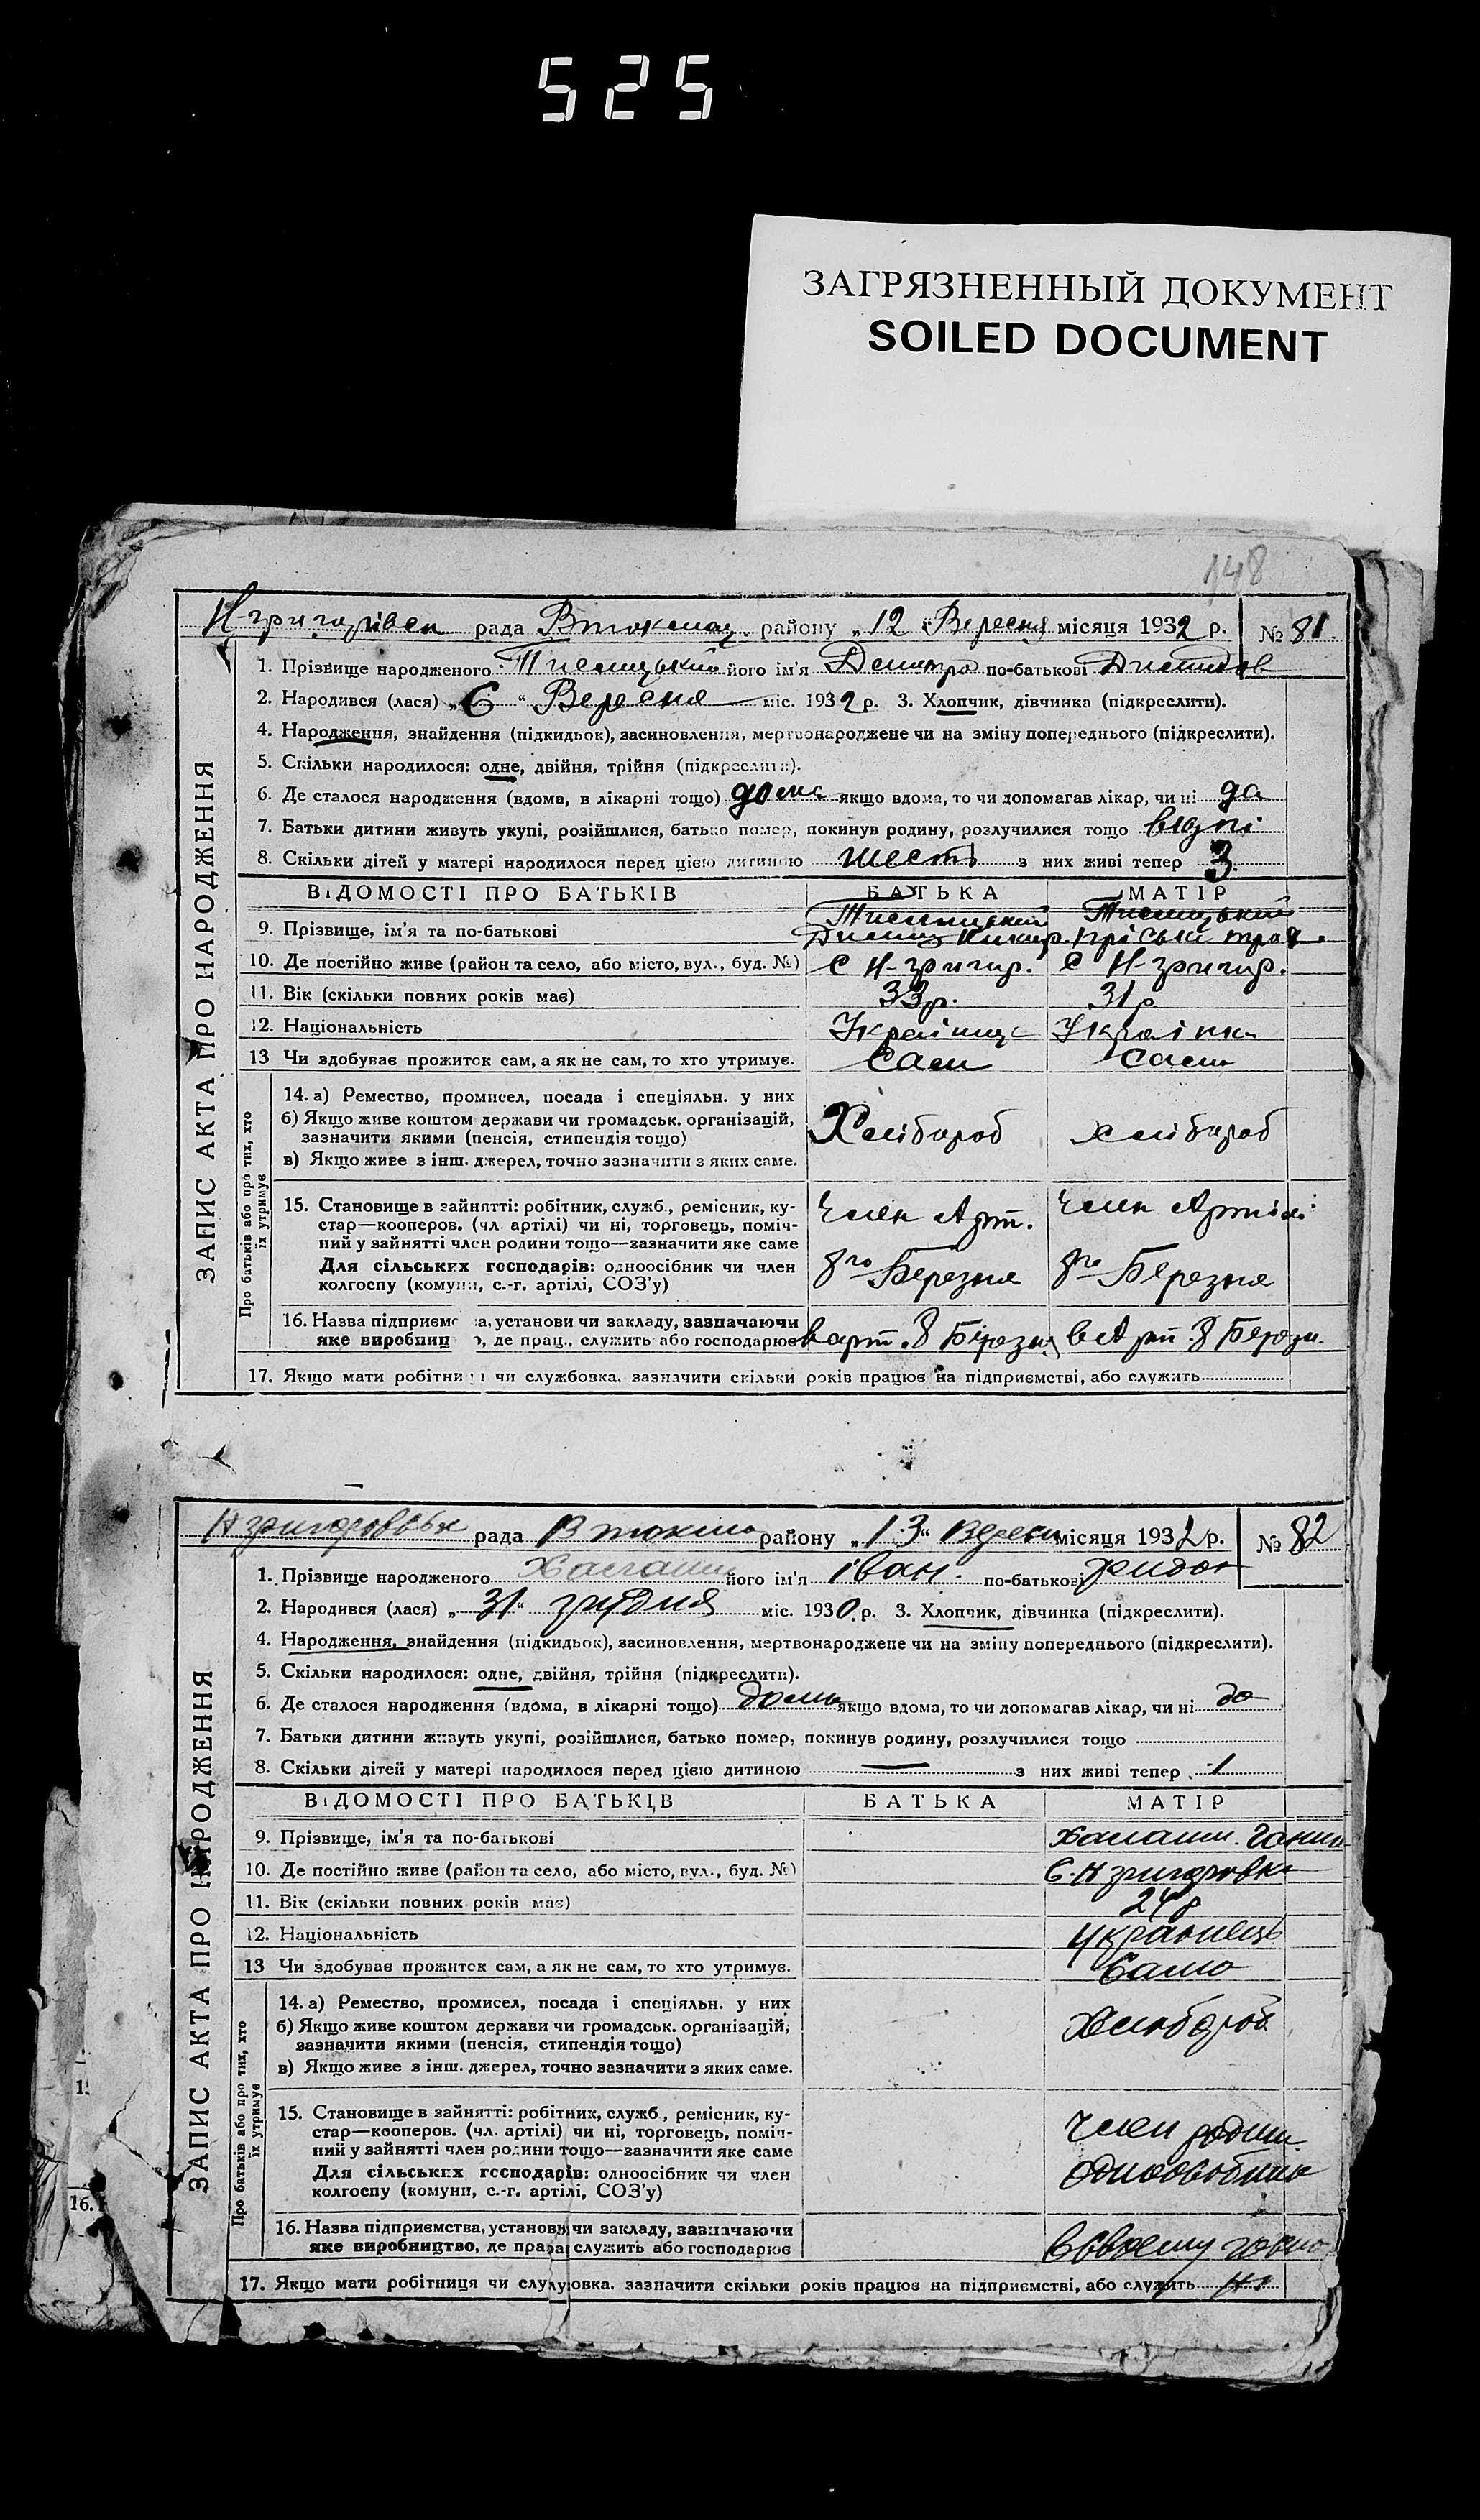 525
ЗАГРЯЗНЕННЫЙ ДОКУМЕНТ
SOILED DOCUMENT
148
Н-григорівск рада Втокмац. району „12“ Вересня місяця 1932 р. № 81
ЗАПИС АКТА ПРО НАРОДЖЕННЯ
1. Прізвище народженого його ім'я Дмитро по-батькові
2. Народився (лася) „6“ Вересня міс. 1932 р. 3. Хлопчик, дівчинка (підкреслити).
4. Народження, знайдення (підкидьок), засиновлення, мертвонароджене чи на зміну попереднього (підкреслити).
5. Скільки народилося: одне, двійня, трійня (підкреслити).
6. Де сталося народження (вдома, в лікарні тощо) дома якщо вдома, то чи допомагав лікар, чи ні да
7. Батьки дитини живуть укупі, розійшлися, батько помер, покинув родину, розлучилися тощо вкупі
8. Скільки дітей у матері народилося перед цією дитиною шесть з них живі тепер 3
ВІДОМОСТІ ПРО БАТЬКІВ БАТЬКА МАТІР
9. Прізвище, ім'я та по-батькові
10. Де постійно живе (район та село, або місто, вул., буд. №) с Н-григор. с Н-григор.
11. Вік (скільки повних років має) 33 р. 31 р
12. Національність Українець Українка
13 Чи здобуває прожиток сам, а як не сам, то хто утримує. Сам сама
Про батьків або про тих, хто їх утримує
14. а) Ремество, промисел, посада і спеціяльн. у них
б) Якщо живе коштом держави чи громадськ. організацій,
зазначити якими (пенсія, стипендія тощо) Хлібороб хлібороб
в) Якщо живе з інш. джерел, точно зазначити з яких саме.
15. Становище в зайнятті: робітник, служб., ремісник, ку-
стар—кооперов. (чл. артілі) чи ні, торговець, поміч- Член Арт. Член Артілі
ний у зайнятті член родини тощо—зазначити яке саме
Для сільських господарів: одноосібник чи член 8го Березня 8го Березня
колгоспу (комуни, с.-г. артілі, СОЗ'у)
16. Назва підприємства, установи чи закладу, зазначаючи
яке виробництво, де прац., служить або господарює в арт. 8 Березня в Арт. 8 Березн.
17. Якщо мати робітниця чи службовка, зазначити скільки років працює на підприємстві, або служить
рада В токма району „13“ місяця 1932 р. № 82
ЗАПИС АКТА ПРО НАРОДЖЕННЯ
1. Прізвище народженого його ім'я Іван по-батькові
2. Народився (лася) „31“ грудня міс. 1930 р. 3. Хлопчик, дівчинка (підкреслити).
4. Народження, знайдення (підкидьок), засиновлення, мертвонароджене чи на зміну попереднього (підкреслити).
5. Скільки народилося: одне, двійня, трійня (підкреслити).
6. Де сталося народження (вдома, в лікарні тощо) дома якщо вдома, то чи допомагав лікар, чи ні да
7. Батьки дитини живуть укупі, розійшлися, батько помер, покинув родину, розлучилися тощо
8. Скільки дітей у матері народилося перед цією дитиною — з них живі тепер 1
ВІДОМОСТІ ПРО БАТЬКІВ БАТЬКА МАТІР
9. Прізвище, ім'я та по-батькові
10. Де постійно живе (район та село, або місто, вул., буд. №) С. Н григоровка
11. Вік (скільки повних років має) 24 р
12. Національність Українець
13 Чи здобуває прожиток сам, а як не сам, то хто утримує. Сама
Про батьків або про тих, хто їх утримує
14. а) Ремество, промисел, посада і спеціяльн. у них
б) Якщо живе коштом держави чи громадськ. організацій, Хлібороб
зазначити якими (пенсія, стипендія тощо)
в) Якщо живе з інш. джерел, точно зазначити з яких саме.
15. Становище в зайнятті: робітник, служб., ремісник, ку-
стар—кооперов. (чл. артілі) чи ні, торговець, поміч- член родин.
ний у зайнятті член родини тощо—зазначити яке саме
Для сільських господарів: одноосібник чи член одноосібник
колгоспу (комуни, с.-г. артілі, СОЗ'у)
16. Назва підприємства, установи чи закладу, зазначаючи
яке виробництво, де працює, служить або господарює В своєму
17. Якщо мати робітниця чи службовка, зазначити скільки років працює на підприємстві, або служить ні
16.